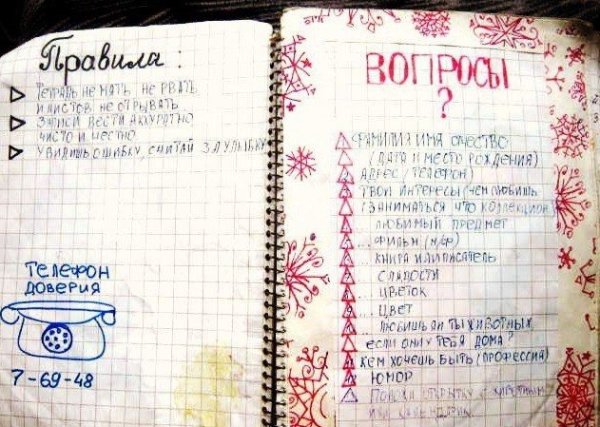 Правила:
Тетрадь не мать, не рвать
и листов не отрывать.
Записи вести аккуратно
чисто и честно
Увидишь ошибку, считай за улыбку
Телефон
доверия
7-69-48
ВОПРОСЫ
?
Фамилия имя отчество
(дата и место рождения)
Адрес (телефон)
Твои интересы (чем любишь
заниматься что коллекцион)
Любимый предмет
...фильм (м/ф)
книга или писатель
сладости
...цветок
...цвет
...любишь ли ты животных,
если они у тебя дома?
Кем хочешь быть (профессия)
Юмор
открытку с животным
или календарик